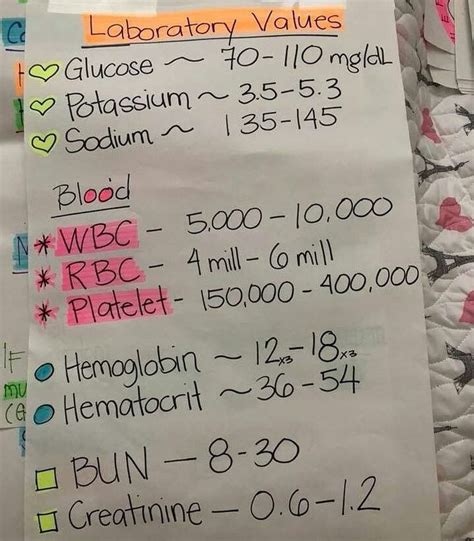 Laboratory Values
Glucose ~ 70-110 mg/dL
Potassium ~ 3.5-5.3
Sodium ~ 135-145
Blood
* WBC - 5,000-10,000
* RBC - 4 mill - 6 mill
* Platelet - 150,000-400,000
Hemoglobin ~ 12x3-18x3
Hematocrit ~ 36-54
BUN - 8-30
Creatinine - 0.6-1.2
IF
mu